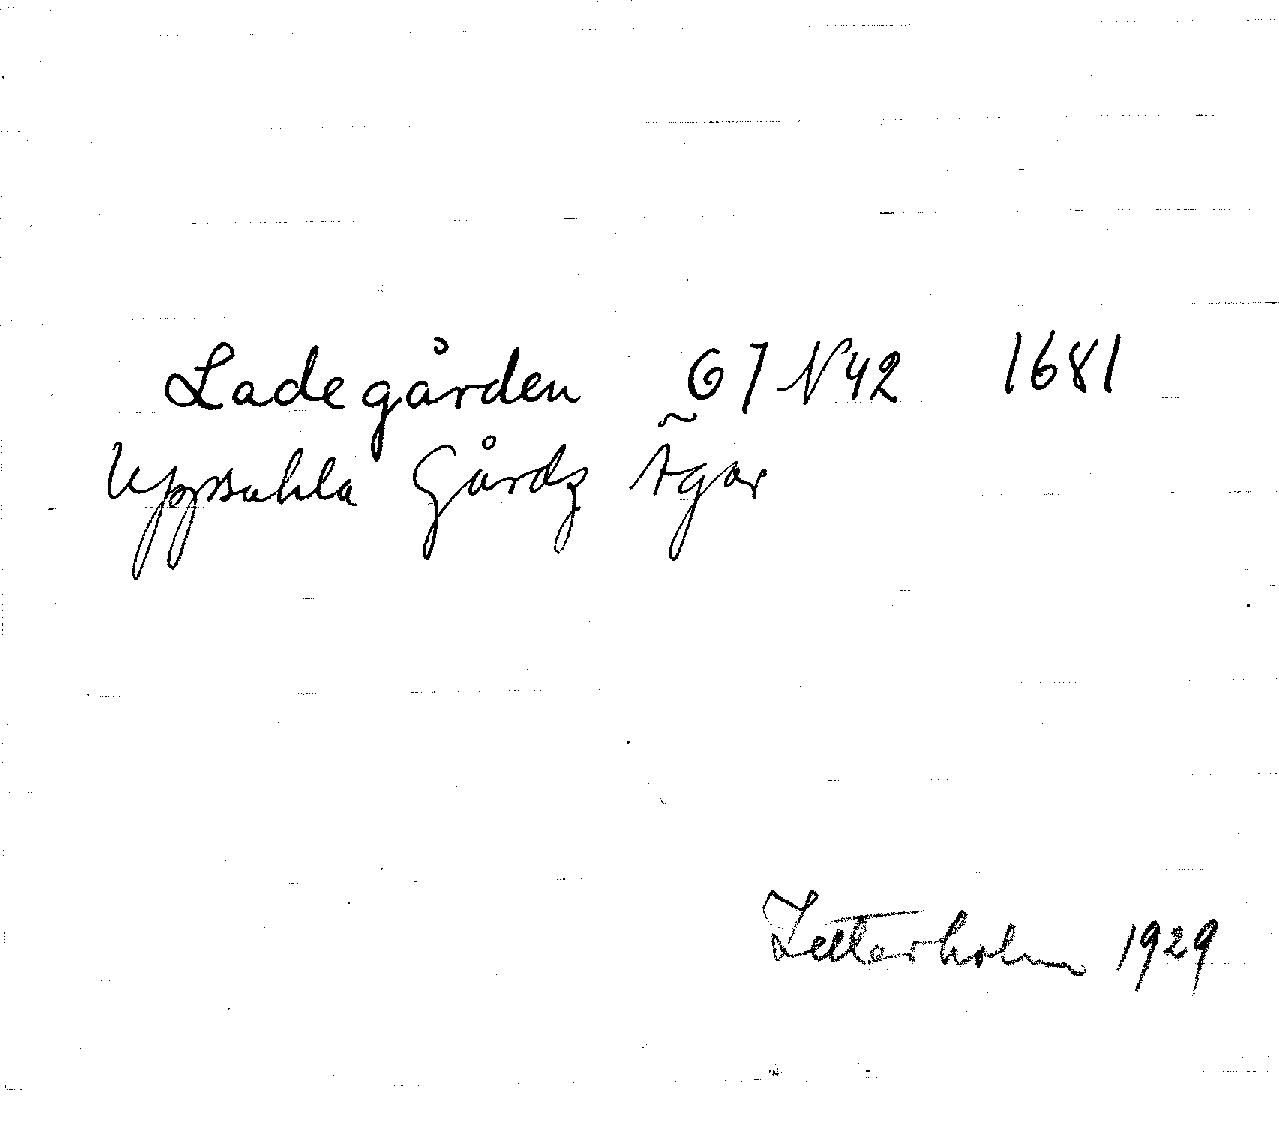 Ladegården G 7 N 42 1681
Uppsahla Gårdz Ãgor
Zetterholm 1929